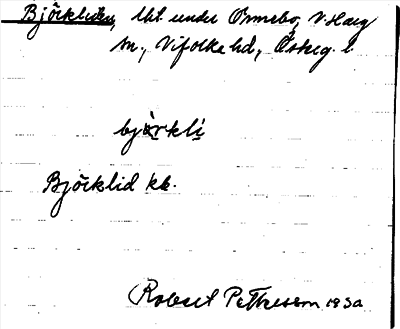 Björkliden, lht. under Ormebo, V. Harg
sn., Vifolka hd, Österg. l.
bjärkli
Björklid kb.
Robert Pettersson 1930